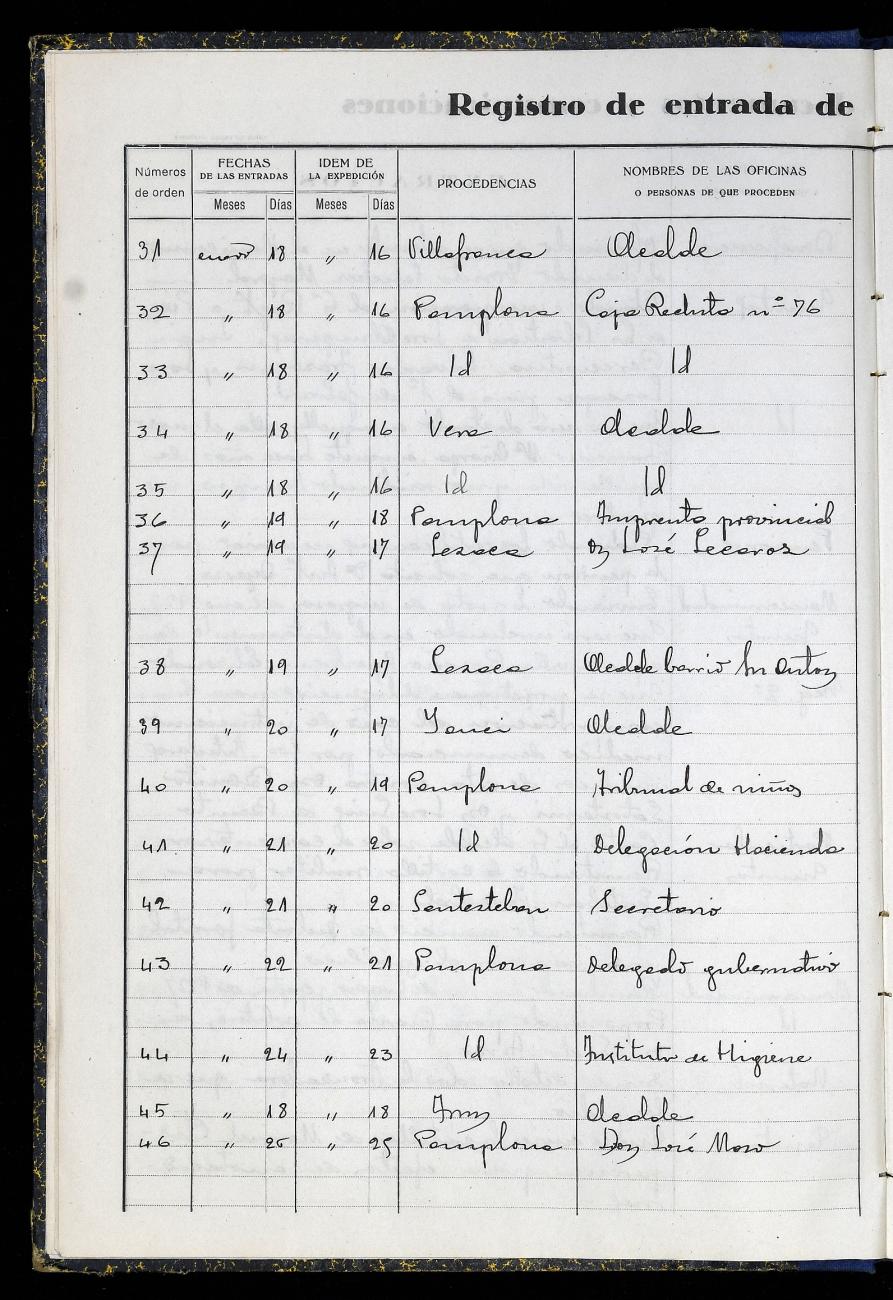 Registro de entrada de
Números de orden
FECHAS DE LAS ENTRADAS
IDEM DE LA EXPEDICIÓN
PROCEDENCIAS
NOMBRES DE LAS OFICINAS O PERSONAS DE QUE PROCEDEN
Meses Días Meses Días
31 enero 18 " 16 Villafranca Alcalde
32 " 18 " 16 Pamplona Caja Recluta nº 76
33 " 18 " 16 Id Id
34 " 18 " 16 Vera Alcalde
35 " 18 " 16 Id Id
36 " 19 " 18 Pamplona Imprenta provincial
37 " 19 " 17 Lesaca Dn José Lecaroz
38 " 19 " 17 Lesaca Alcalde barrio Sn Anton
39 " 20 " 17 Yanci Alcalde
40 " 20 " 19 Pamplona Tribunal de niños
41 " 21 " 20 Id Delegación Hacienda
42 " 21 " 20 Santesteban Secretario
43 " 22 " 21 Pamplona Delegado gubernativo
44 " 24 " 23 Id Instituto de Higiene
45 " 18 " 18 Alcalde
46 " 26 " 25 Pamplona Don José Moso